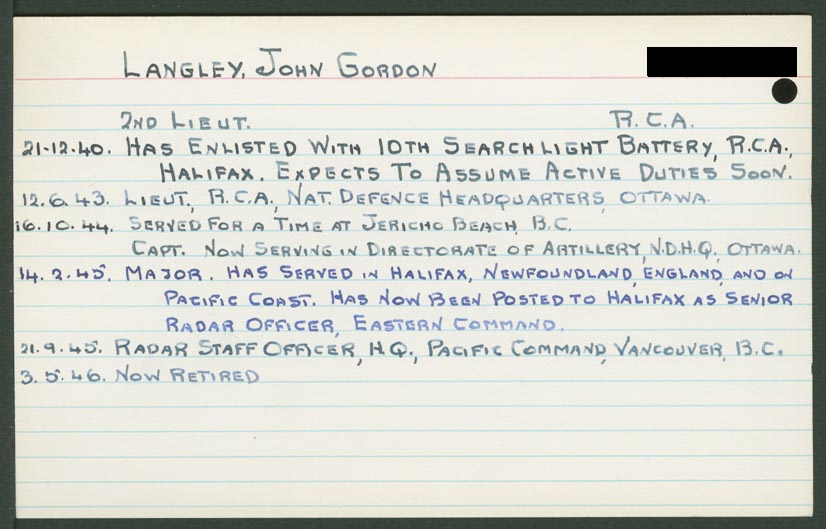 LANGLEY, JOHN GORDON
2ND LIEUT. R.C.A.
21-12-40. HAS ENLISTED WITH 10TH SEARCHLIGHT BATTERY, R.C.A.,
HALIFAX. EXPECTS TO ASSUME ACTIVE DUTIES SOON.
12.6.43. LIEUT., R.C.A., NAT. DEFENCE HEADQUARTERS, OTTAWA.
16.10.44. SERVED FOR A TIME AT JERICHO BEACH, B.C.
CAPT. NOW SERVING IN DIRECTORATE OF ARTILLERY, N.D.H.Q., OTTAWA.
14.2.45. MAJOR. HAS SERVED IN HALIFAX, NEWFOUNDLAND, ENGLAND, AND ON
PACIFIC COAST. HAS NOW BEEN POSTED TO HALIFAX AS SENIOR
RADAR OFFICER, EASTERN COMMAND.
21.9.45. RADAR STAFF OFFICER, H.Q., PACIFIC COMMAND, VANCOUVER, B.C.
3.5.46. NOW RETIRED